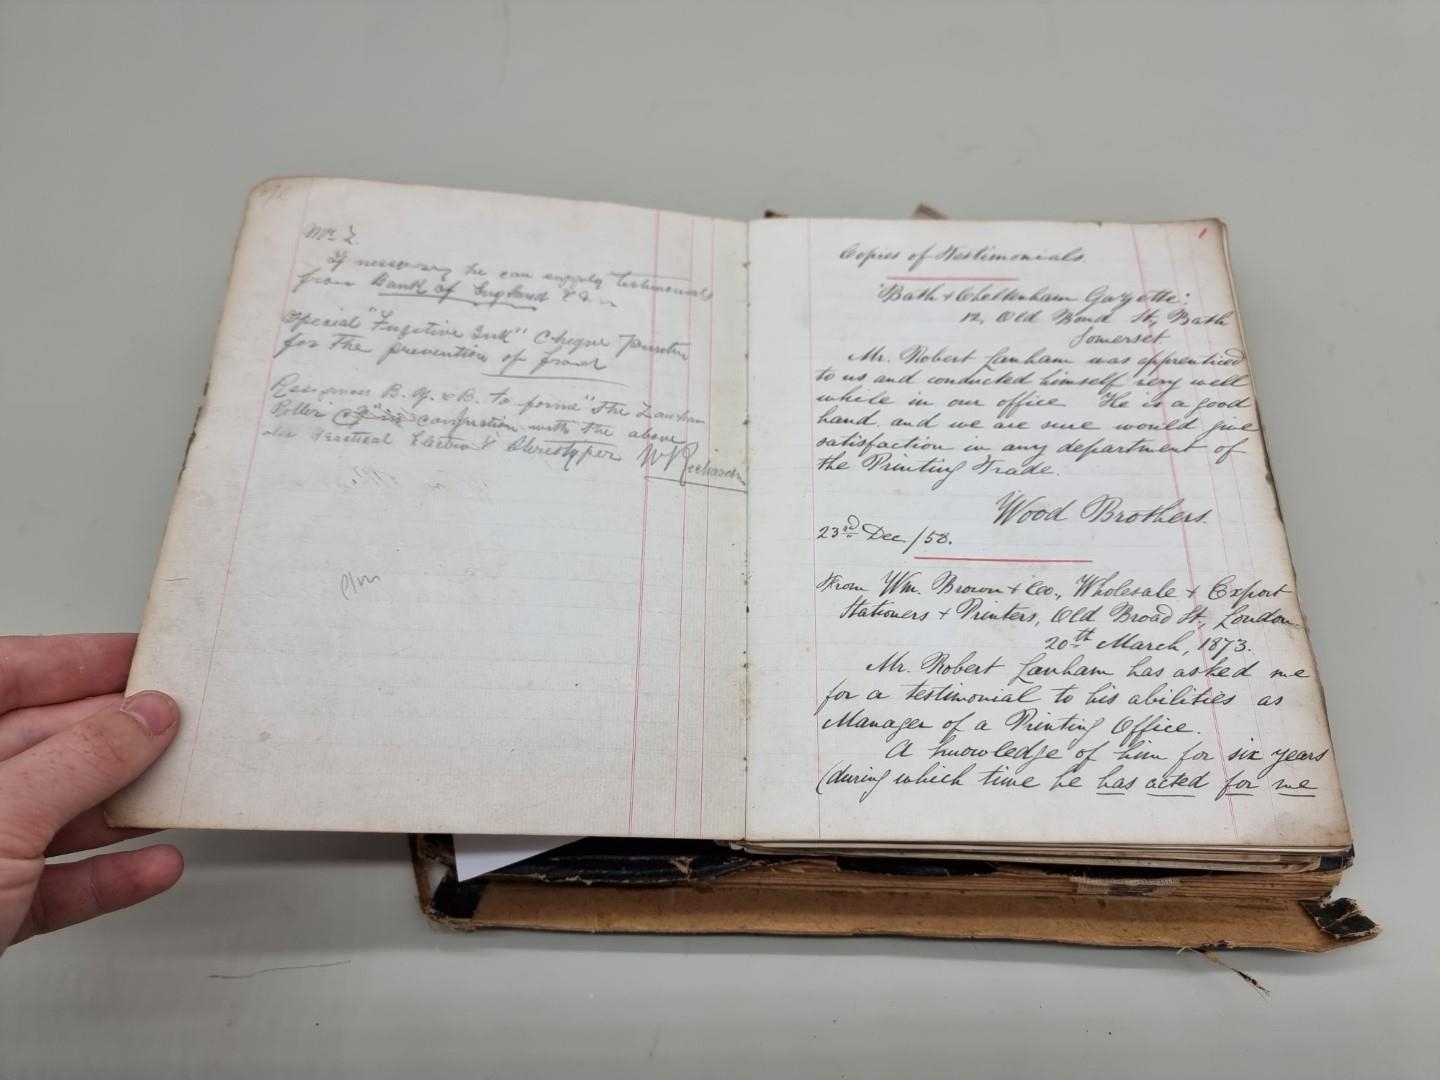 Mr. L.
If necessary he can supply Testimonials
from Bank of England
Special "Fugitive Ink" Cheque Printer
for the prevention of fraud
B. G. & B. to form "The Lanham
Roller Co" in conjunction with the above
also Practical Electro & Stereotyper W Richardson
p/m
1
Copies of Testimonials.
"Bath & Cheltenham Gazette":
12, Old Bond St., Bath
Somerset
Mr. Robert Lanham was apprenticed
to us and conducted himself very well
while in our office. He is a good
hand, and we are sure would give
satisfaction in any department of
the Printing Trade.
Wood Brothers.
23rd Dec /58.
From Wm. Brown & Co., Wholesale & Export
Stationers & Printers, Old Broad St., London
20th March, 1873.
Mr. Robert Lanham has asked me
for a testimonial to his abilities as
Manager of a Printing Office.
A knowledge of him for six years
(during which time he has acted for me